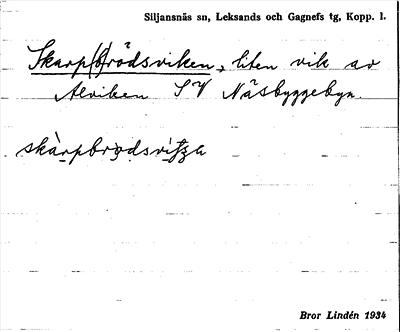 Siljansnäs sn, Leksands och Gagnefs tg, Kopp. l.
Skarp(b)rödsviken, liten vik av
Alviken SV Näsbyggebyn.
skàrpbrǫdsvitʃa
Bror Lindén 1934